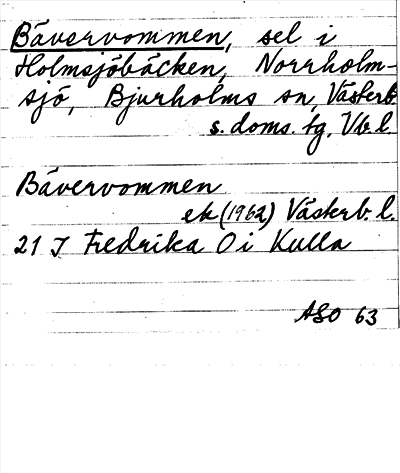 Bävervommen, sel i
Holmsjöbäcken, Norrholm-
sjö, Bjurholms sn, Västerb.
s. doms. tg, Vb l.
Bävervommen
ek (1962) Västerb. l.
21 J Fredrika O i Kulla
ASO 63